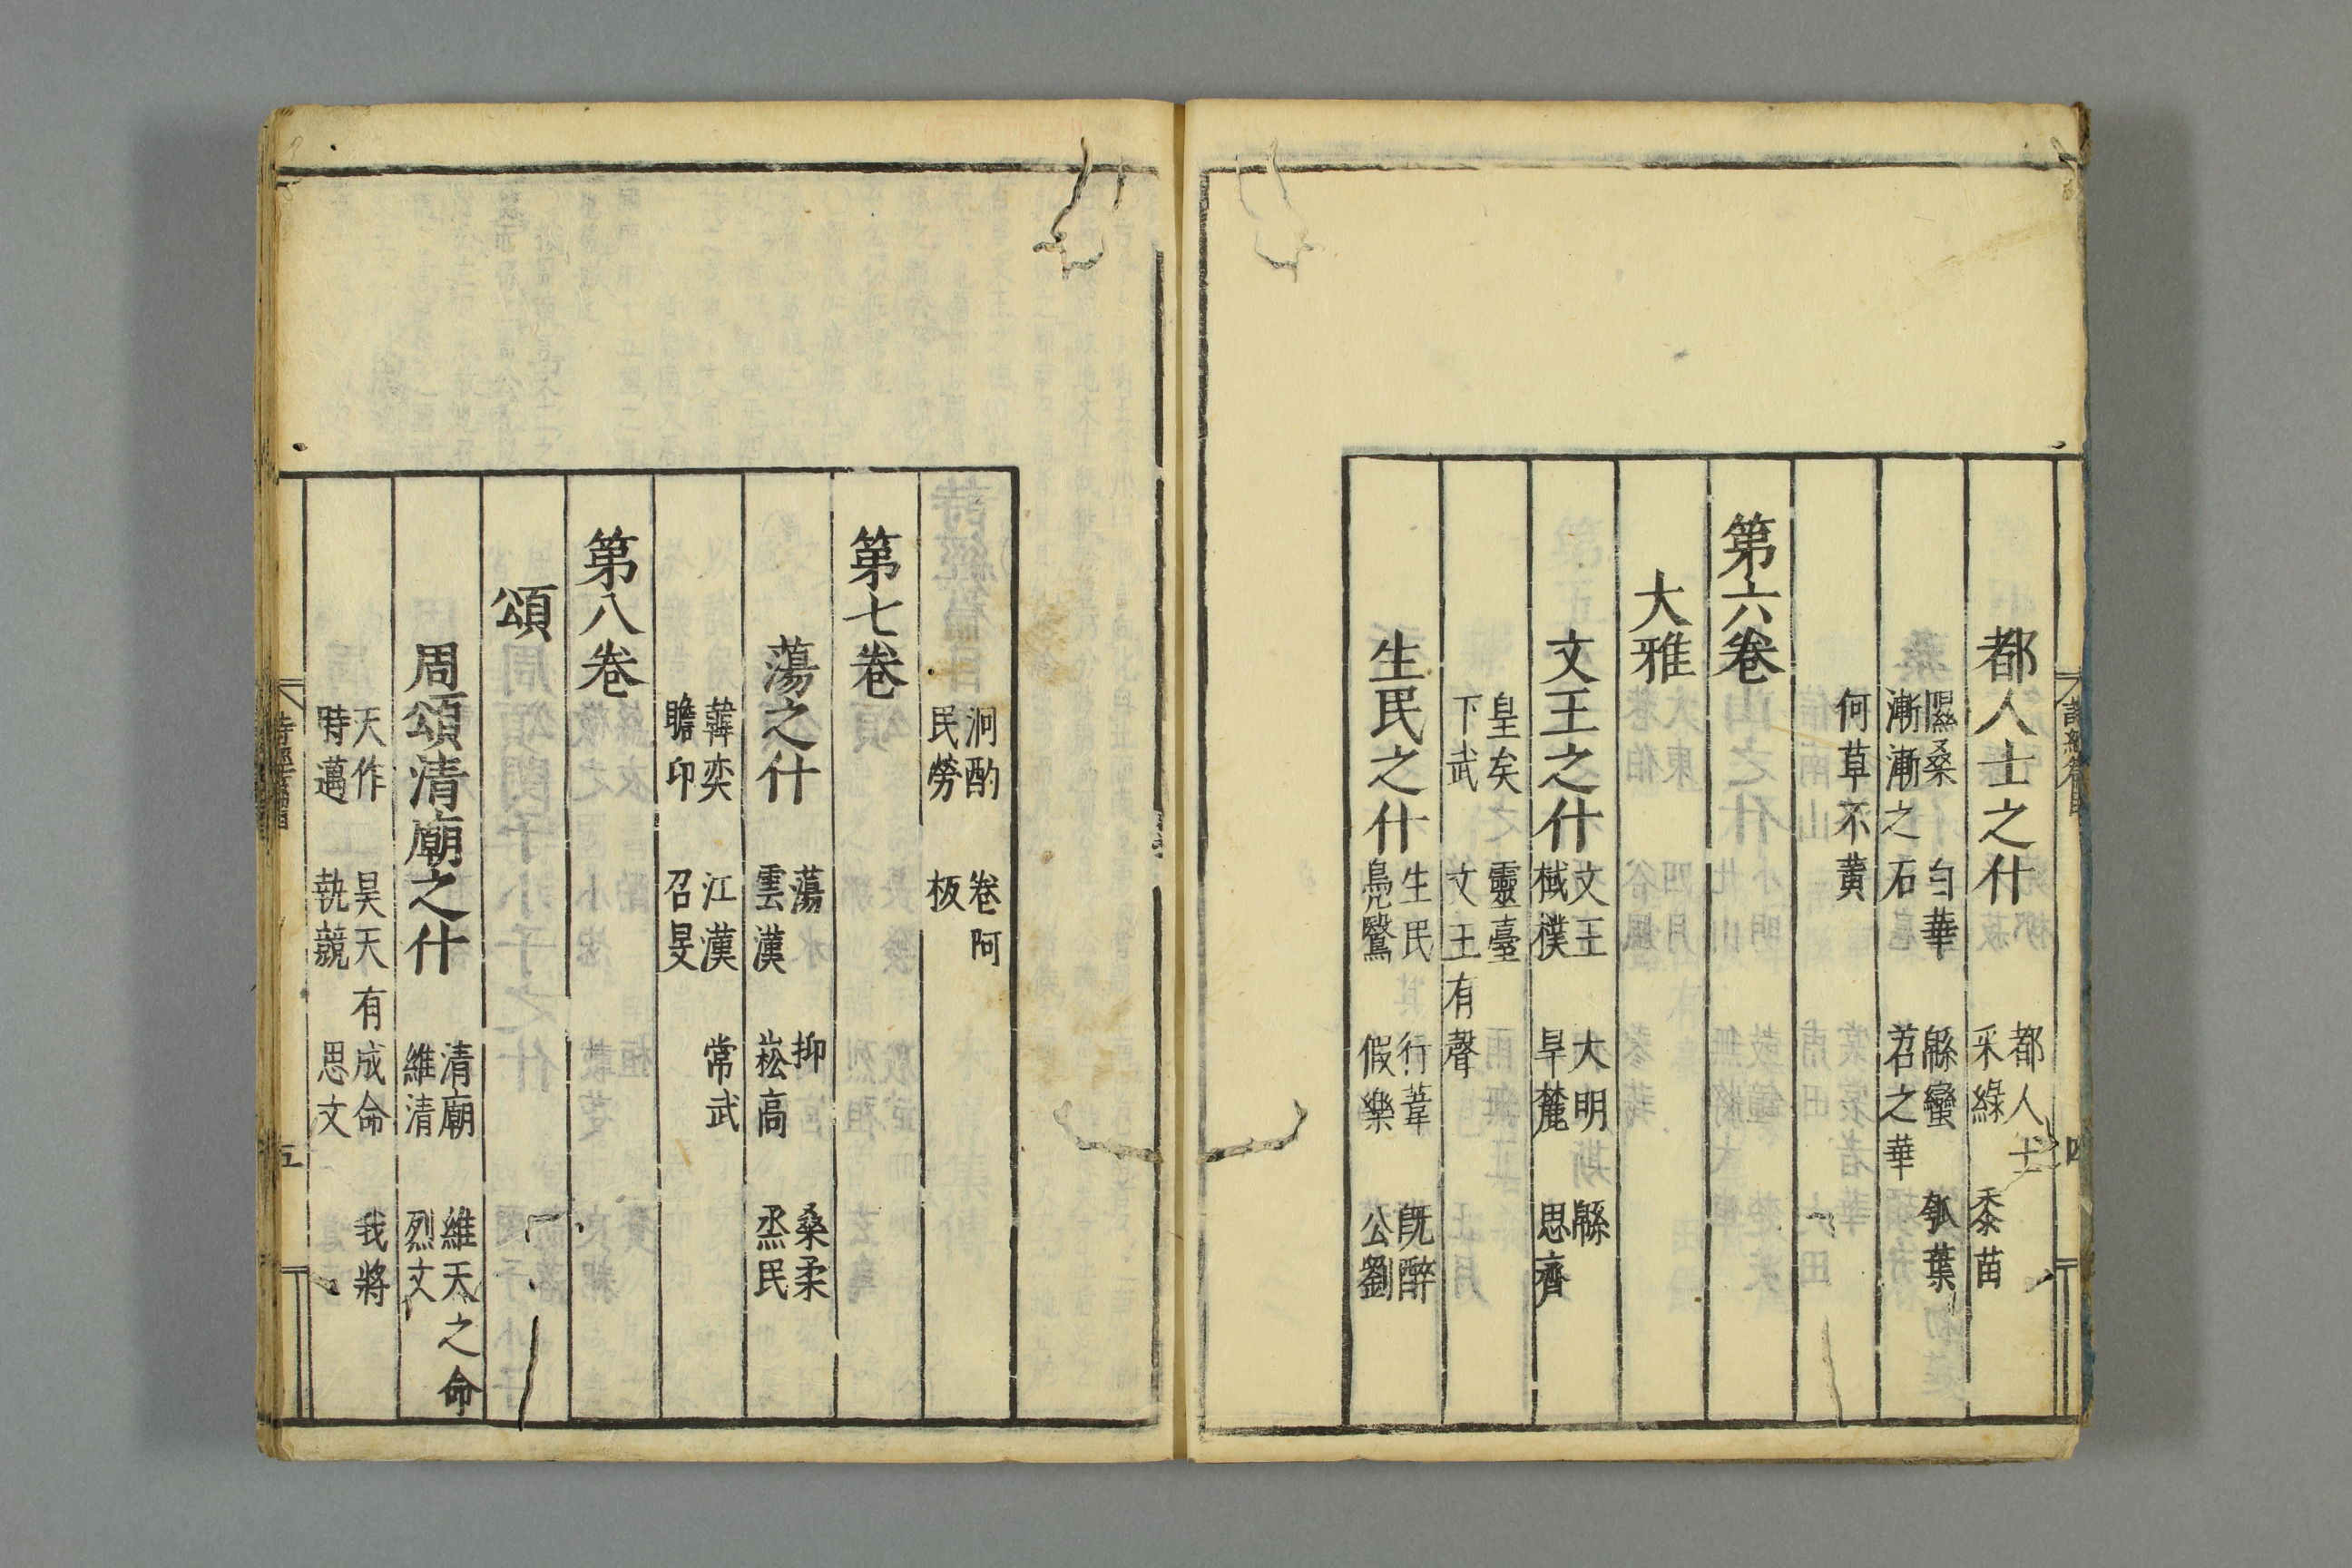 詩經篇目 四
都人士之什
都人士
采綠 黍苗
隰桑 白華 緜蠻 瓠葉
漸漸之石 苕之華
何草不黃
第六卷
大雅
文王之什
文王 大明 緜
棫樸 旱麓 思齊
皇矣 靈臺
下武 文王有聲
生民之什
生民 行葦 旣醉
鳧鷖 假樂 公劉
泂酌 卷阿
民勞 板
第七卷
蕩之什
蕩 抑 桑柔
雲漢 崧高 烝民
韓奕 江漢 常武
瞻卬 召旻
第八卷
頌
周頌清廟之什
清廟 維天之命
維清 烈文
天作 昊天有成命 我將
時邁 執競 思文
詩經篇目 五